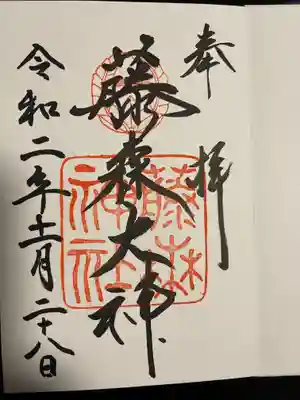 奉拝
藤森大神
藤森
神社
令和二年十一月二十八日